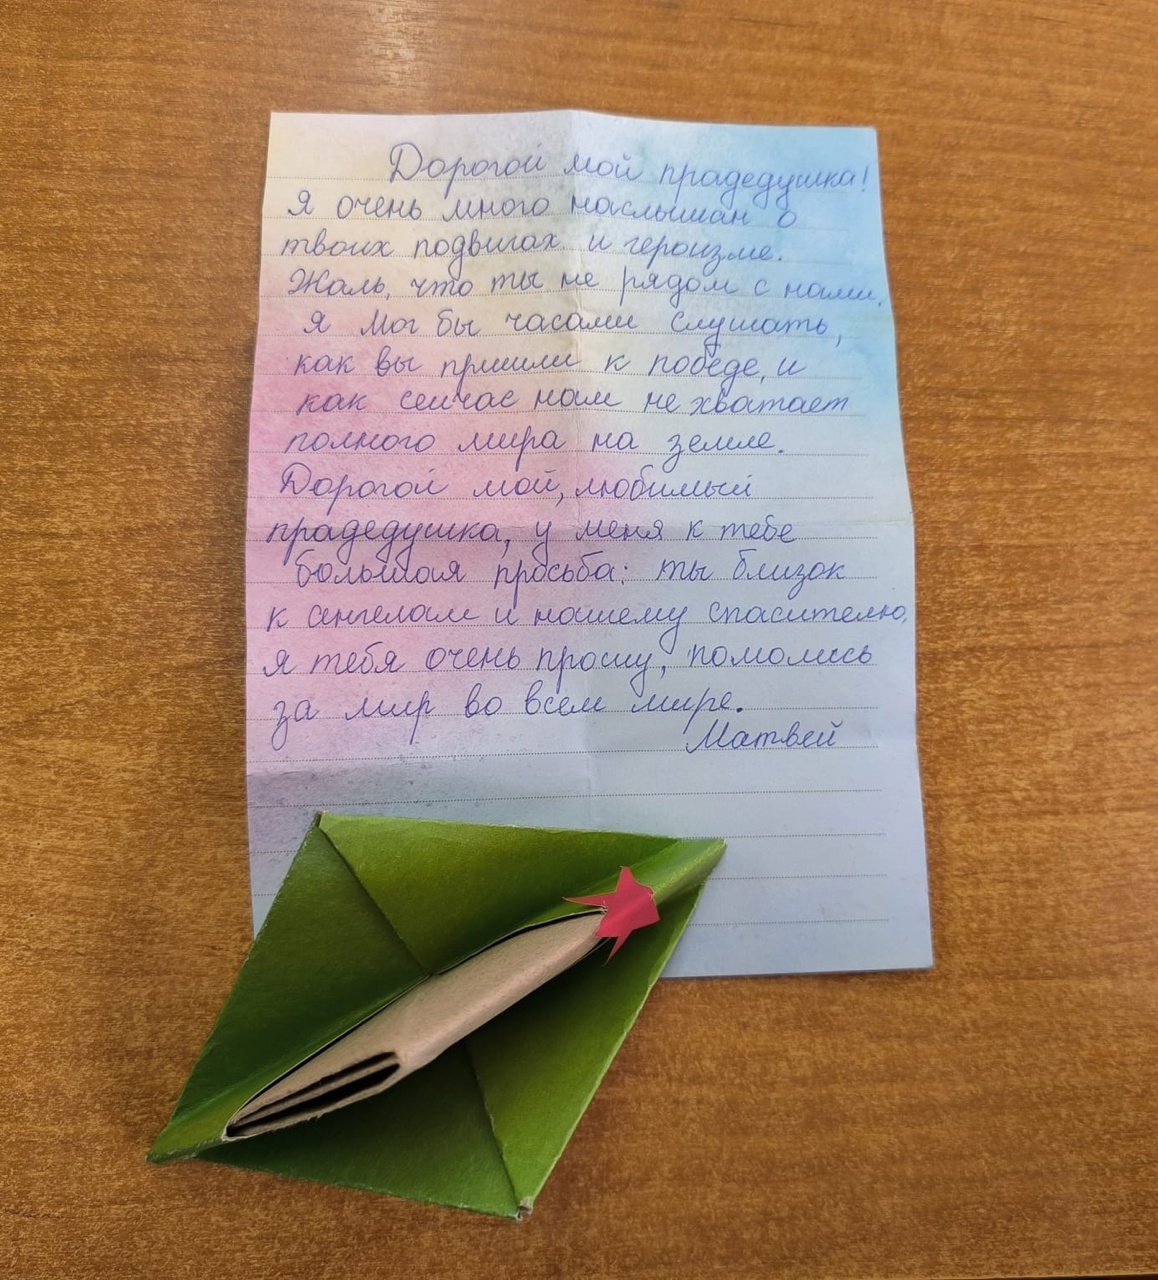 Дорогой мой прадедушка!
Я очень много наслышан о
твоих подвигах и героизме.
Жаль, что ты не рядом с нами,
я мог бы часами слушать,
как вы пришли к победе, и
как сейчас нам не хватает
полного мира на земле.
Дорогой мой, любимый
прадедушка, у меня к тебе
большая просьба: ты близок
к ангелам и нашему спасителю,
я тебя очень прошу, помолись
за мир во всем мире.
Матвей